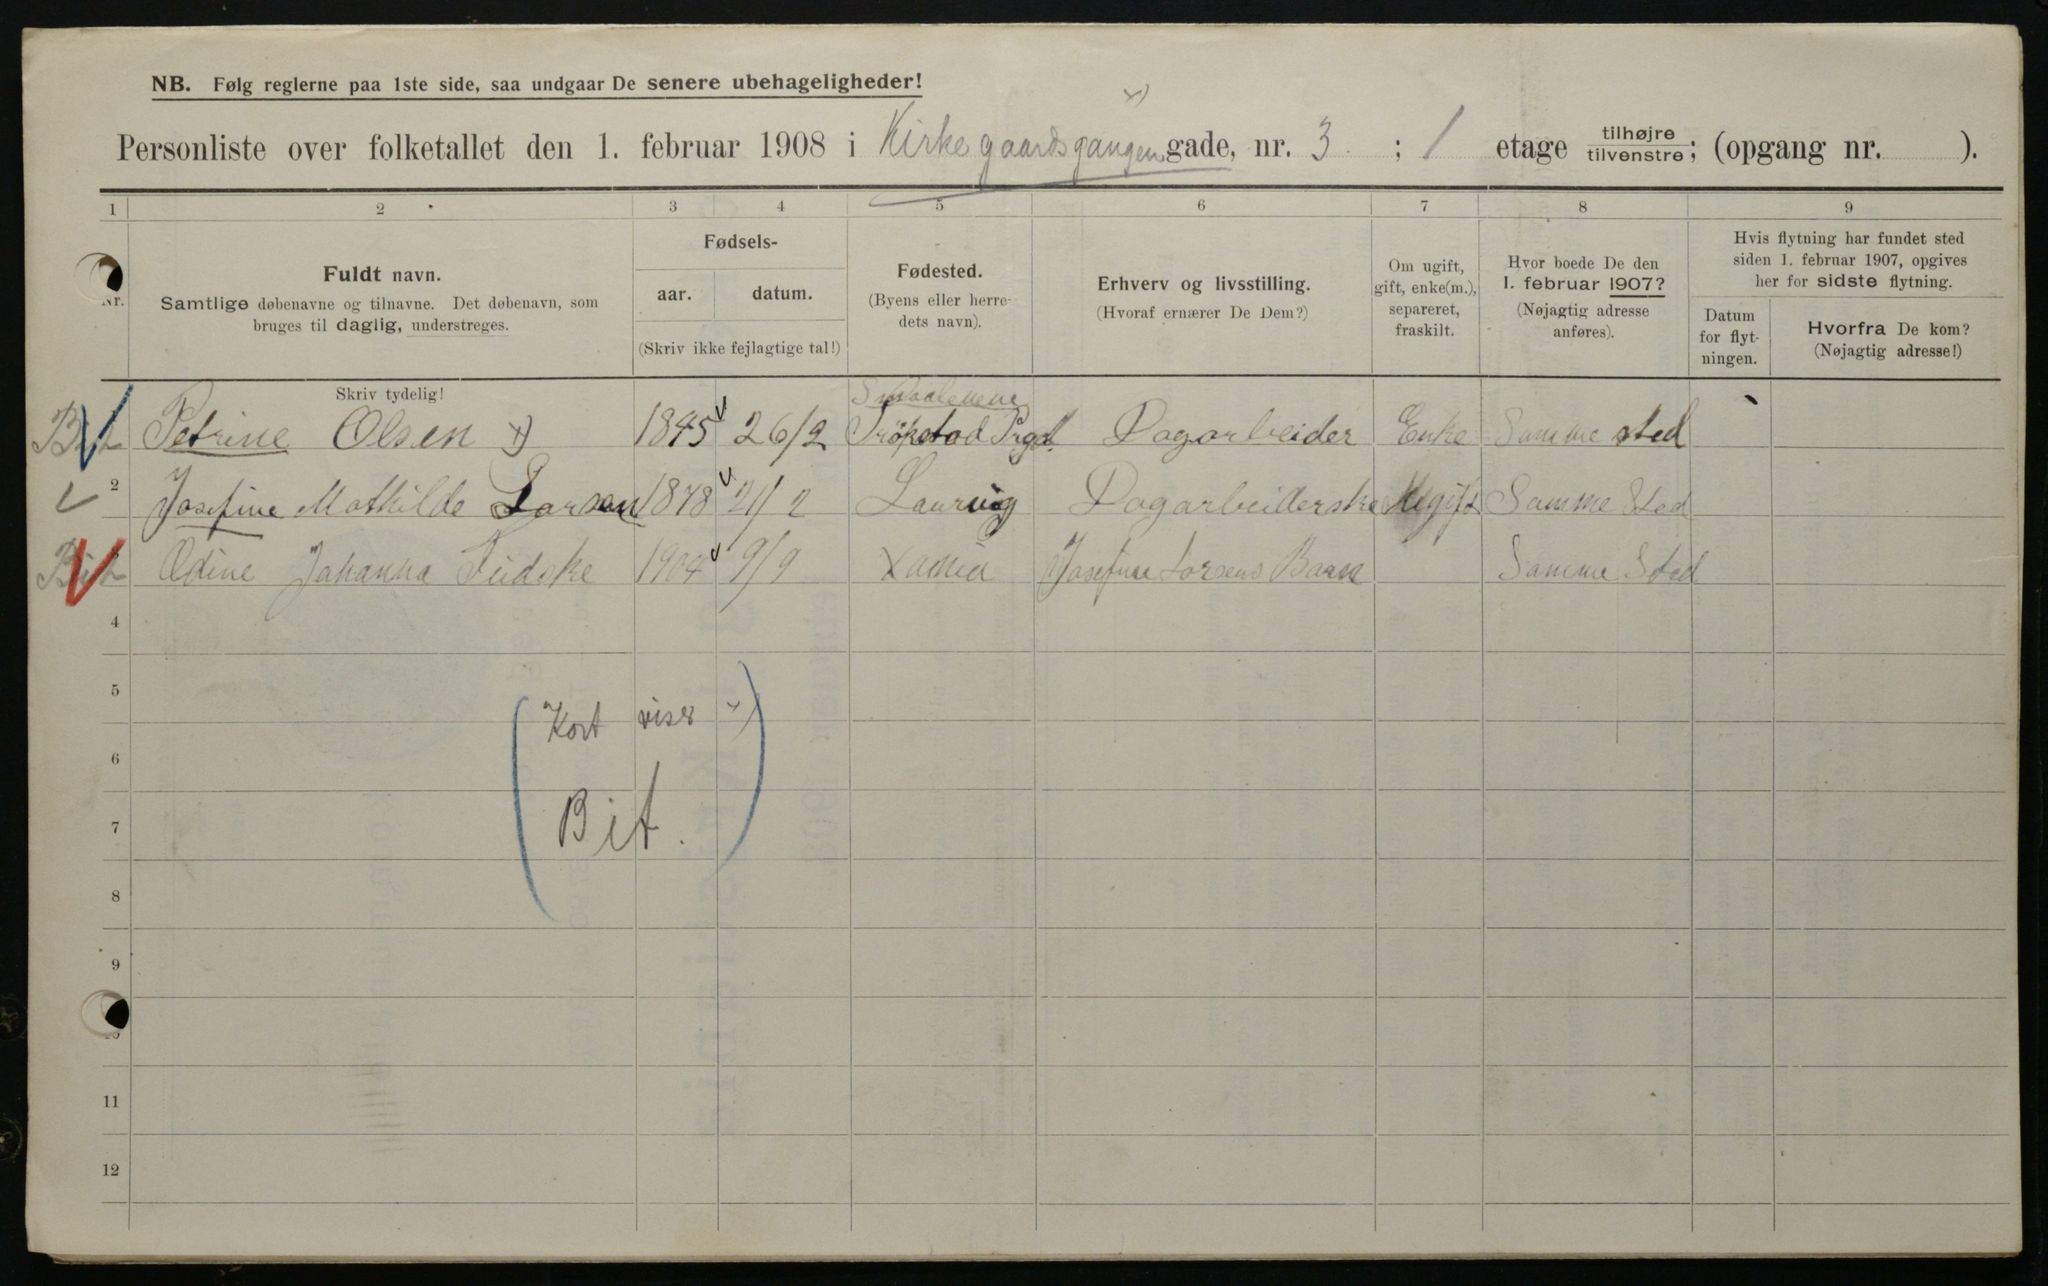 NB. Følg reglerne paa 1ste side, saa undgaar De senere ubehageligheder!
x)
Personliste over folketallet den 1. februar 1908 i Kirkegaardsgangen gade, nr. 3 ; 1 etage tilhøjre tilvenstre; (opgang nr. ).
1 2 3 4 5 6 7 8 9
Nr.
Fuldt navn.
Samtlige døbenavne og tilnavne. Det døbenavn, som
bruges til daglig, understreges.
Fødsels-
aar. datum.
(Skriv ikke fejlagtige tal!)
Fødested.
(Byens eller herre-
dets navn).
Erhverv og livsstilling.
(Hvoraf ernærer De Dem?)
Om ugift,
gift, enke(m.),
separeret,
fraskilt.
Hvor boede De den
1. februar 1907?
(Nøjagtig adresse
anføres).
Hvis flytning har fundet sted
siden 1. februar 1907, opgives
her for sidste flytning.
Datum
for flyt-
ningen.
Hvorfra De kom?
(Nøjagtig adresse!)
Skriv tydelig!
Smaalenene
Petrine Olsen x) 1845 26/2 Trøkstad Prgd. Dagarbeider Enke Samme sted
2 Josefine Mathilde Larsen 1878 21/2 Laurvig Dagarbeiderske Ugift Samme Sted
Odine Johanna 1904 9/9 Xania Josefine Larsens Barn Samme Sted
4
5
(Kort viser x)
6
7
Bit.)
8
9
10
11
12